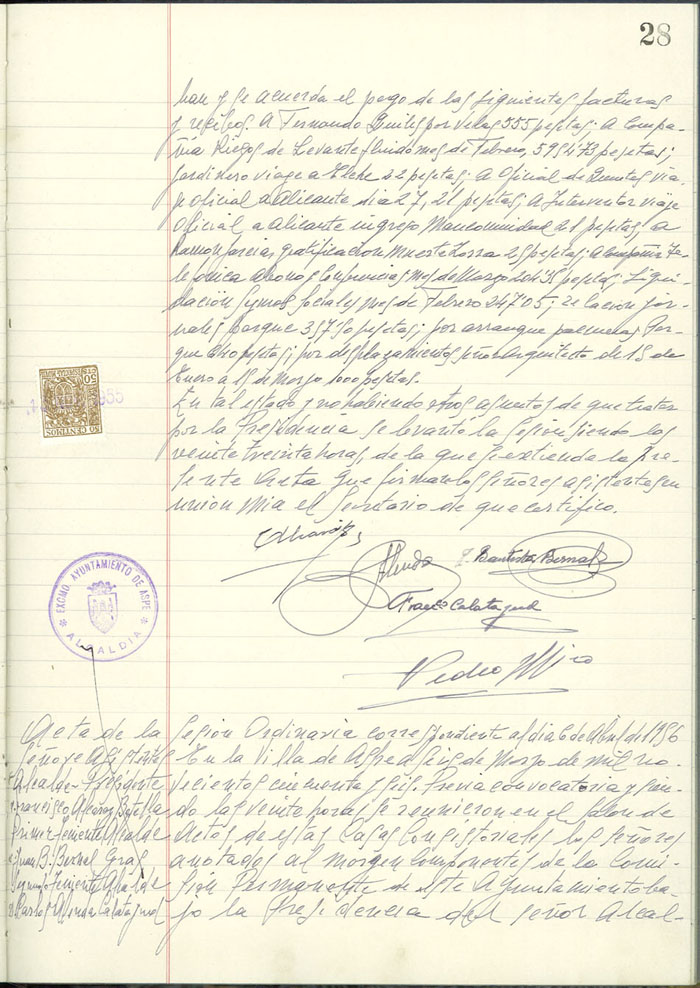 28
ban y se acuerda el pago de las siguientes facturas
y recibos. A Fernando Quiles por velas 555 pesetas; a Compa-
ñia Riegos de Levante fluido mes de Febrero, 5954'73 pesetas;
jardinero viage a Elche 22 pesetas; a Oficial de Quintas via-
je oficial a Alicante dia 27, 21 pesetas; a Interventor viaje
Oficial a Alicante ingreso Mancomunidad 21 pesetas, a
Ramon Garcias gratificacion muerte zorra 25 pesetas; a Compañia Te-
lefonica abonos Conferencias mes de Marzo 204'35 pesetas; Liqui-
dación Seguros Sociales mes de Febrero 247'05; relacion jor-
nales parque 357'50 pesetas; por arranque palmeras Par-
que pesetas; por desplazamientos señor Arquitecto de 15 de
Enero a 15 de Marzo 1000 pesetas.
En tal estado y no habiendo otros asuntos de que tratar
por la Presidencia se levantó la sesion siendo las
veinte treinta horas, de la que se extiende la pre-
sente Acta que firman los señores asistentes en
union mia el Secretario de que certifico.
50 CENTIMOS
EXCMO. AYUNTAMIENTO DE ASPE
ALCALDIA
Bautista Bernal
Franco Calatayud
Pedro Miro
Acta de la Sesion Ordinaria correspondiente al dia 6 de Abril de 1956
Señores Asistentes
Alcalde-Presidente
Francisco Alcaraz Botella
Primer Teniente Alcalde
Juan B. Bernal Gras
Segundo Teniente Alcalde
Carlos Alenda Calatayud
En la Villa de Aspe a seis de Marzo de mil no-
vecientos cincuenta y seis. Previa convocatoria y sien-
do las veinte horas se reunieron en el Salon de
Actos de estas Casas Consistoriales los señores
anotados al margen componentes de la Comi-
sion Permanente de este Ayuntamiento ba-
jo la Presidencia del señor Alcal-